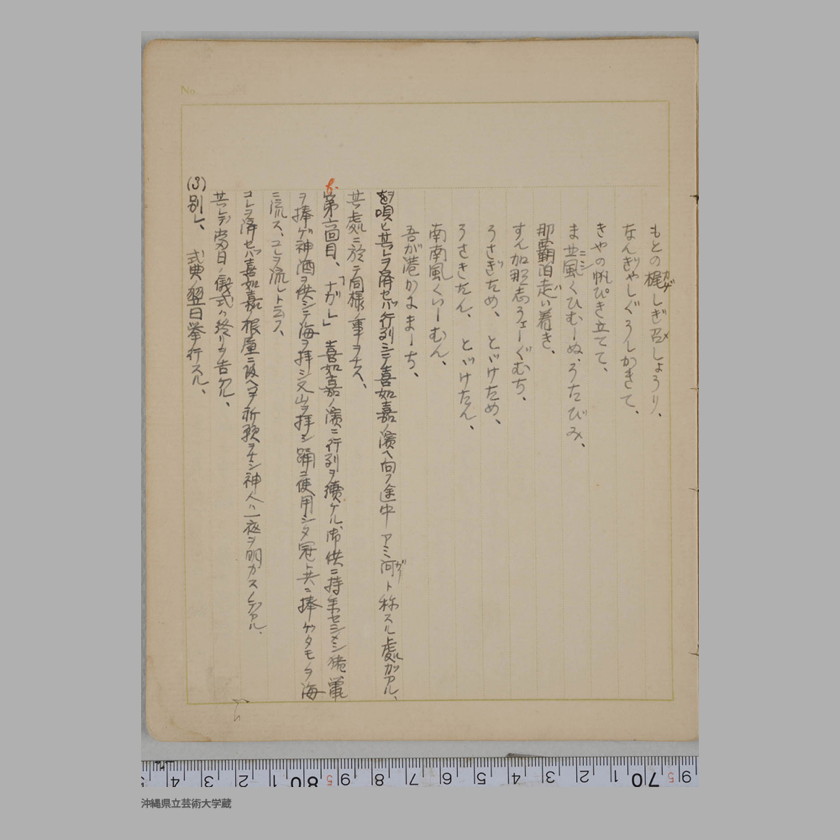 もとの梶しぎ召しょうり、
なんぎゃしぐるしかきて、
きやの帆びき立てて、
ま丑風くひむーぬ、うたびみ、
那覇泊走い着き、
すん加那志うえーぐむち、
うさぎため、とゞけため、
うさきたん、とゞけたん、
南南風くいーむん、
吾が港かままーち、
を唄と其レヲ済セバ行列シテ喜如嘉ノ濱ヘ向フ途中アミ河ト称スル處ガアル、
其ノ處ニ於テ同様ノ事ヲナス、
第六回目、「ナガレ」喜如嘉ノ濱ニ行列ヲ續ケル、御供ニ持参セシメシ
ヲ捧ゲ神酒ヲ供シテ海ヲ拝シ又山ヲ拝シ踊ニ使用シタ冠ト共ニ捧ゲタモノヲ海
ニ流ス、コレヲ流レト云フ、
コレヲ済セバ喜如嘉ノ根屋ニ祈願ヲナシ神人ハ一夜ヲ明カスノデアル、
其レデ當日ノ儀式ハ終リヲ告グ、
(3) 別レ、式典翌日挙行スル、
No.
沖縄県立芸術大学蔵